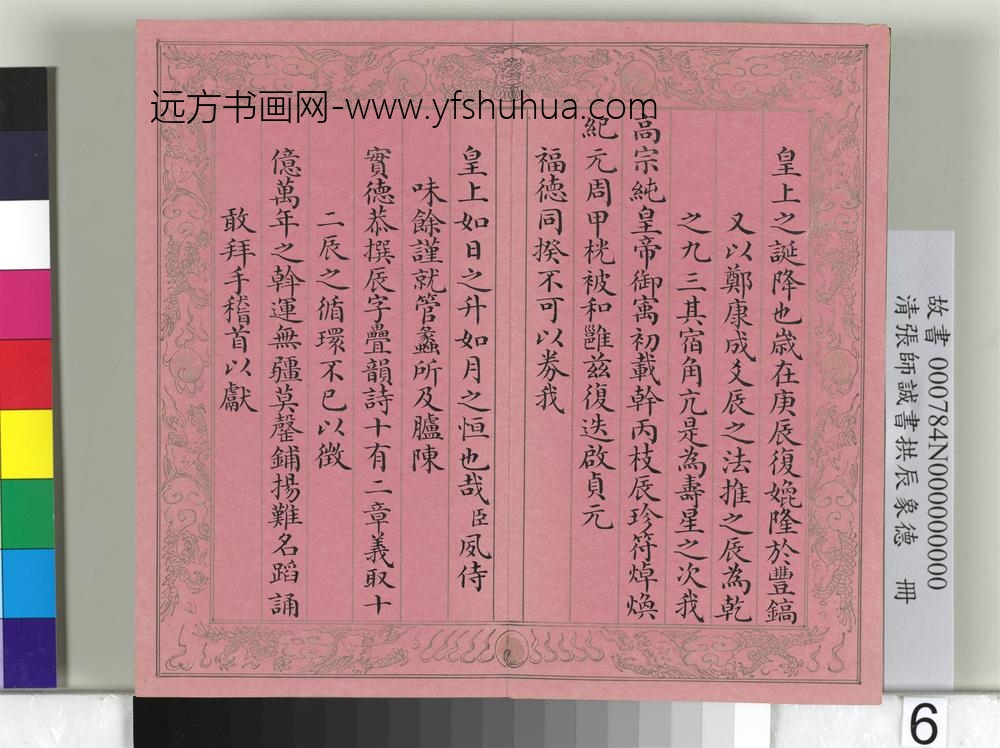 远方书画网-www.yfshuhua.com
皇上之誕降也歲在庚辰復媲隆於豐鎬
又以鄭康成爻辰之法推之辰為乾
之九三其宿角亢是為壽星之次我
高宗純皇帝御寓初載幹丙枝辰珍符焯煥
紀元周甲桄被和雝茲復迭啟貞元
福德同揆不可以券我
皇上如日之升如月之恒也哉臣夙侍
味餘謹就管蠡所及臚陳
實德恭撰辰字疊韻詩十有二章義取十
二辰之循環不已以徵
億萬年之斡運無疆莫罄鋪揚難名蹈誦
敢拜手稽首以獻
故書 000784N000000000
清張師誠書拱辰象德 冊
6